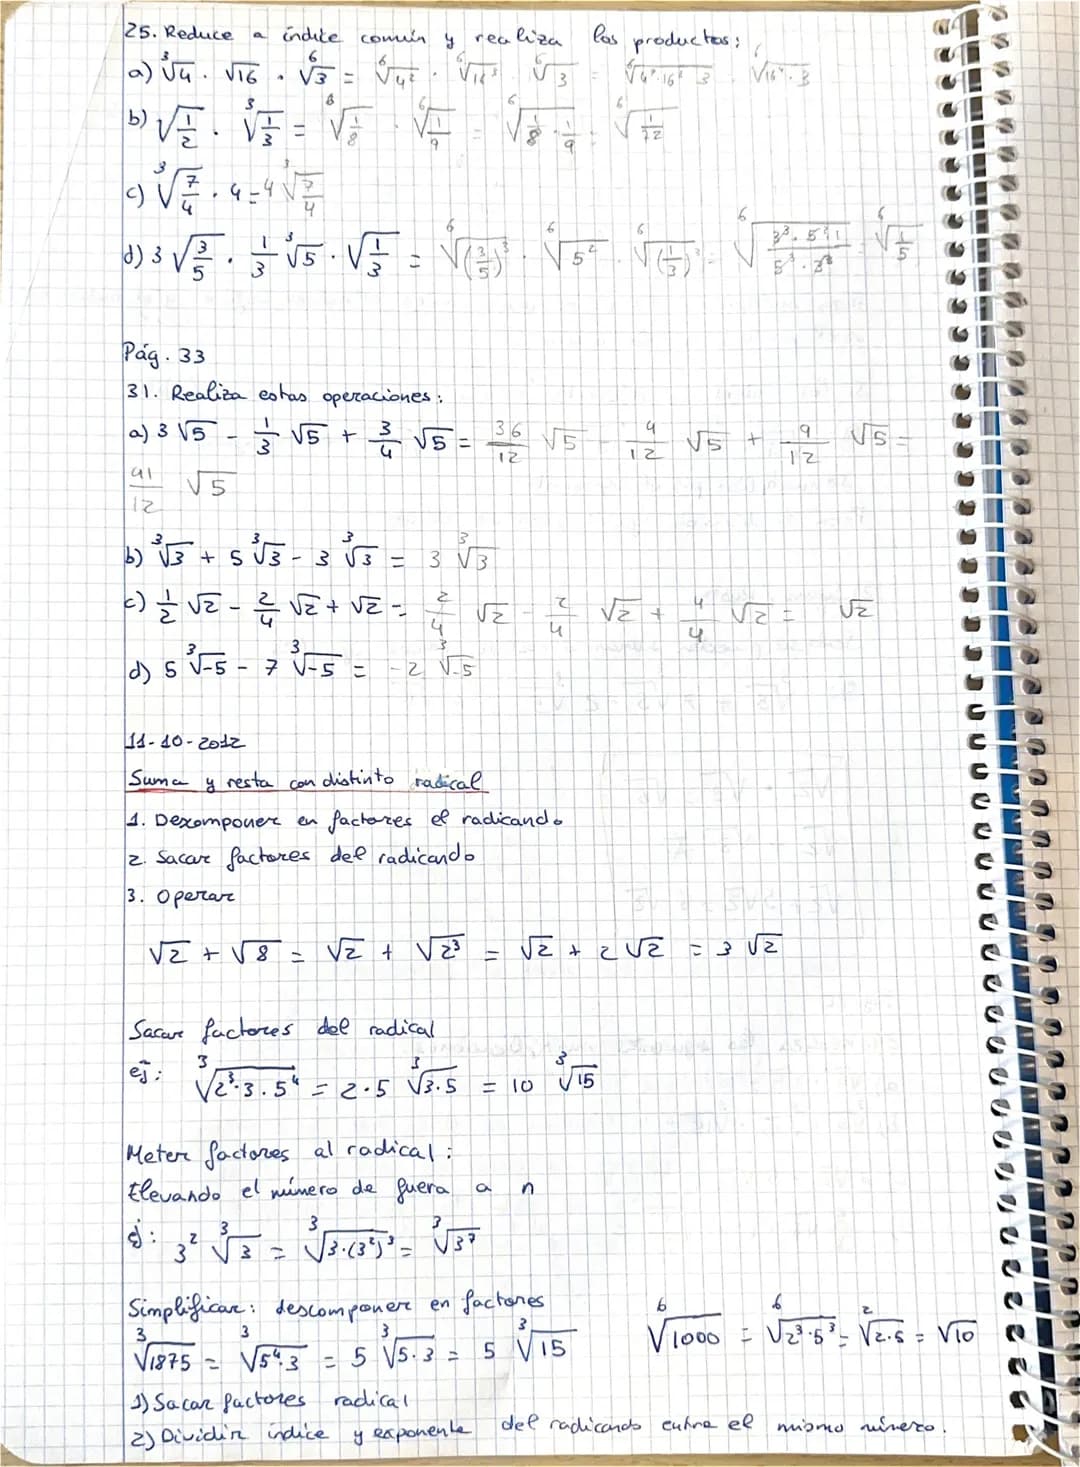 25. Reduce a índice común y realiza los productos:
a) ∛4 · √16 · ⁶√3 = ⁶√4² · ⁶√16³ · ⁶√3 = ⁶√4²·16³·3 = ⁶√16⁴·3
b) √(1/2) · ∛(1/3) = ⁶√(1/8) · ⁶√(1/9) = ⁶√(1/8 · 1/9) = ⁶√(1/72)
c) ∛(7/4) · 4 = 4 ∛(7/4)
d) 3 √(3/5) · 1/3 ∛5 · √(1/3) = ⁶√(3/5)³ · ⁶√5² · ⁶√(1/3)³ = ⁶√(3³·5²·1 / 5³·3³) = ⁶√(1/5)
Pág. 33
31. Realiza estas operaciones:
a) 3 √5 - 1/3 √5 + 3/4 √5 = 36/12 √5 - 4/12 √5 + 9/12 √5 =
41/12 √5
b) ∛3 + 5 ∛3 - 3 ∛3 = 3 ∛3
c) 1/2 √2 - 2/4 √2 + √2 = 2/4 √2 - 2/4 √2 + 4/4 √2 = √2
d) 5 ∛-5 - 7 ∛-5 = -2 ∛-5
11-10-2012
Suma y resta con distinto radical
1. Dexomponer en factores el radicando
2. Sacar factores del radicando
3. Operar
√2 + √8 = √2 + √2³ = √2 + 2 √2 = 3 √2
Sacar factores del radical
ej: ∛2³·3·5⁴ = 2·5 ∛3·5 = 10 ∛15
Meter factores al radical:
Elevando el número de fuera a n
ej: 3² ∛3 = ∛3·(3²)³ = ∛3⁷
Simplificar: descomponer en factores
∛1875 = ∛5⁴·3 = 5 ∛5·3 = 5 ∛15 ⁶√1000 = ⁶√2³·5³ = ²√2·5 = √10
1) Sacar factores radical
2) Dividir índice y exponente del radicando entre el mismo número.